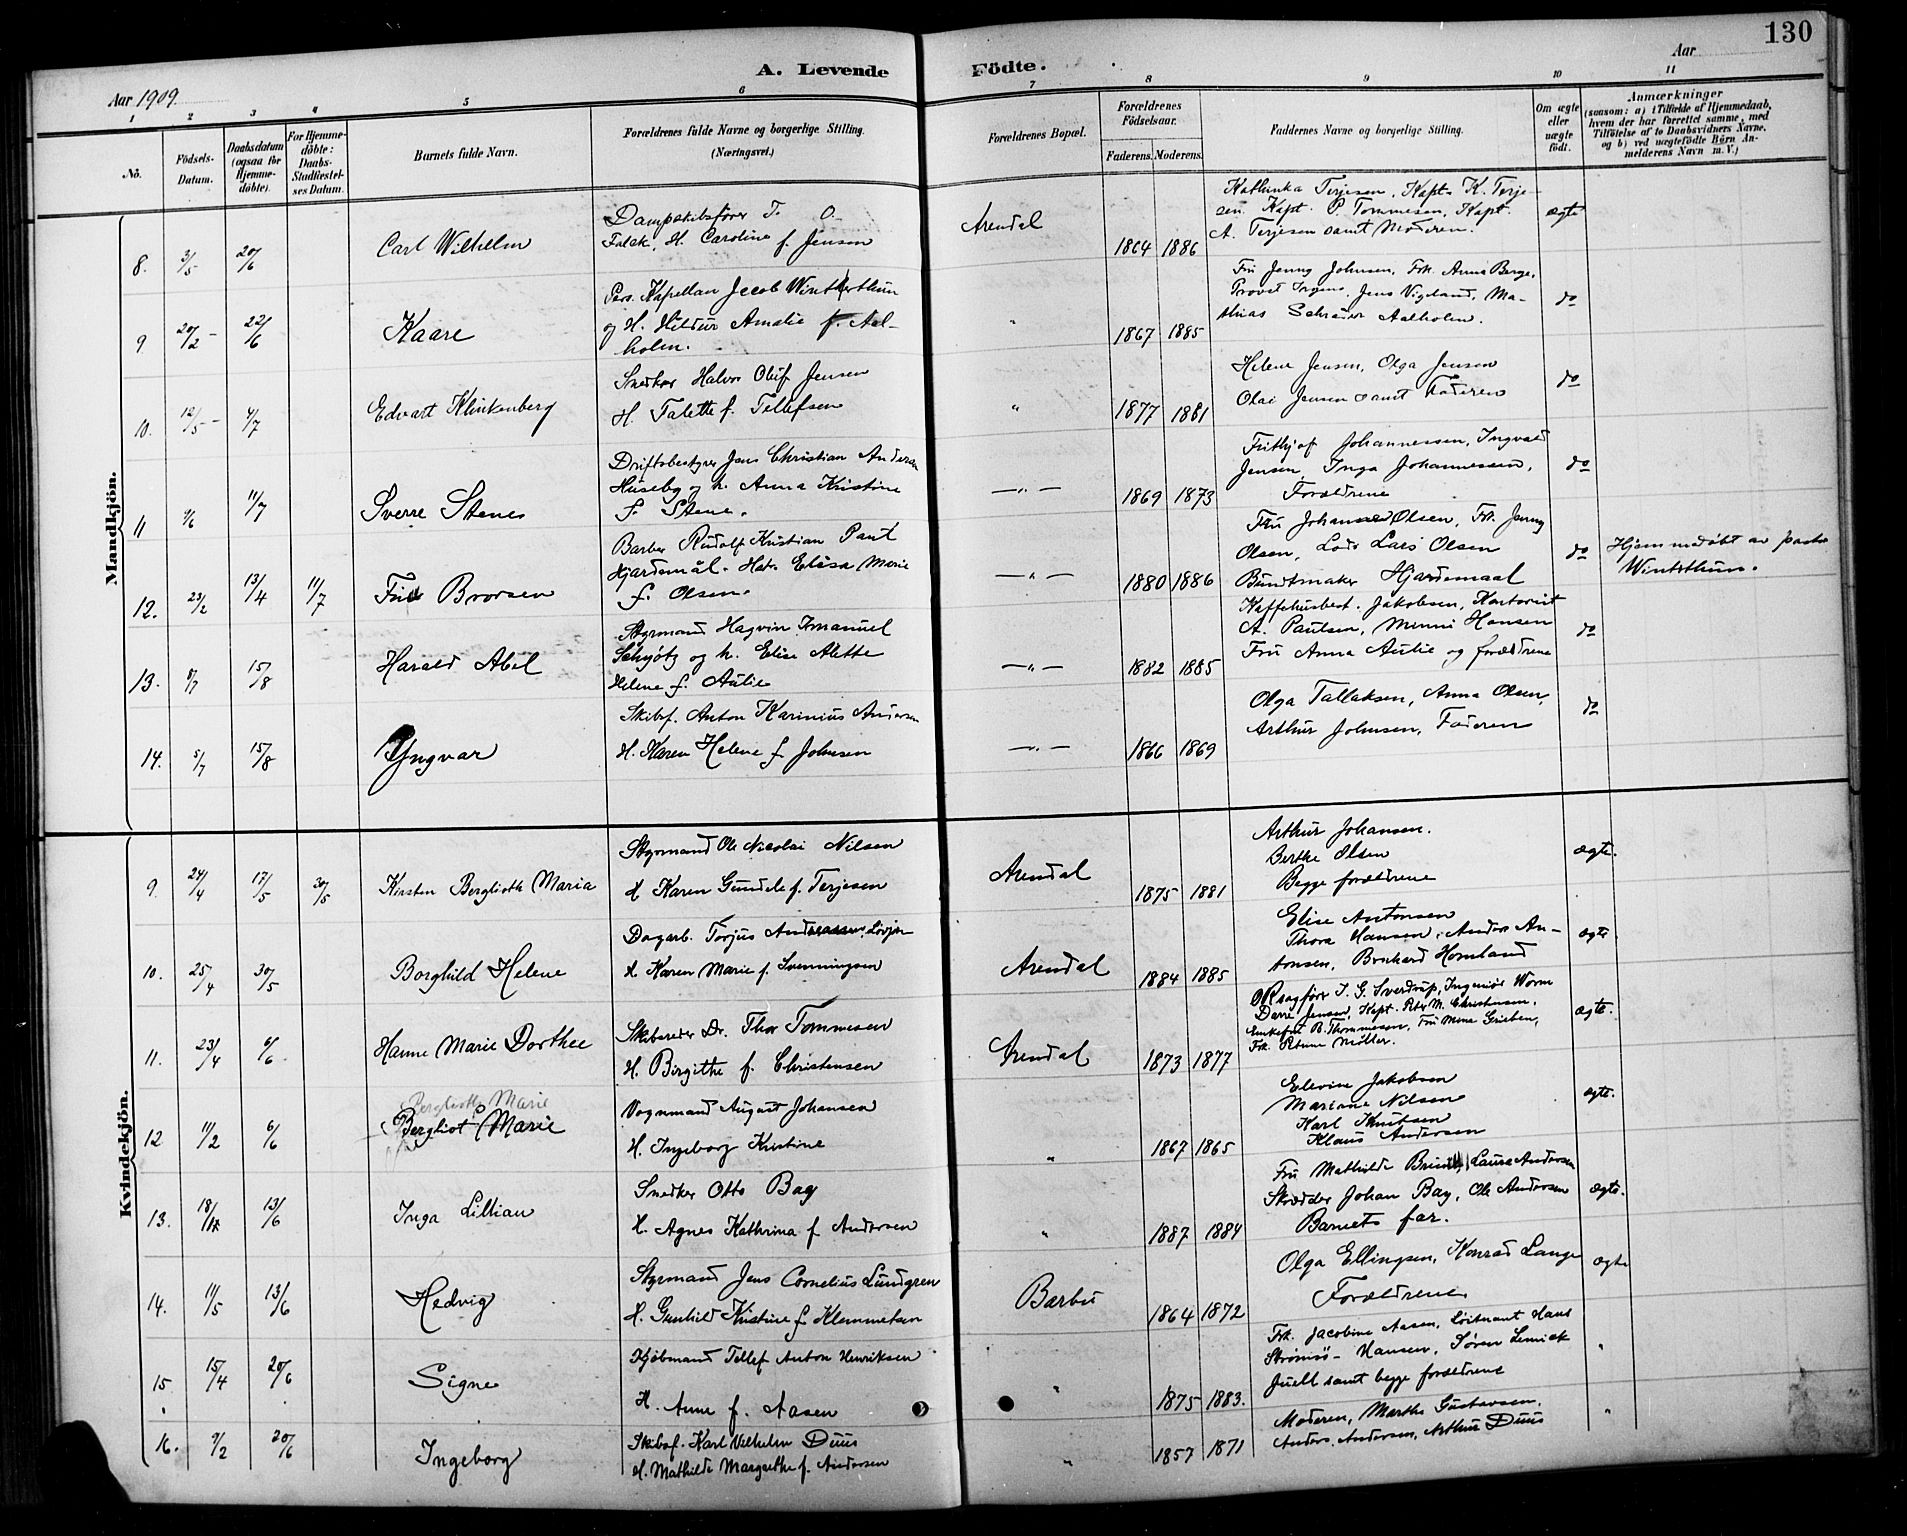 130
A. Levende Födte.
Aar 1909.
Aar
1 2 3 4 5 6 7 8 9 10 11
No.
Födsels-Datum.
Daabsdatum (ogsaa for Hjemme-döbte).
For Hjemme-döbte: Daabs-Stadfæstel-ses Datum.
Barnets fulde Navn.
Forældrenes fulde Navne og borgerlige Stilling. (Næringsvei.)
Forældrenes Bopæl.
Forældrenes Födselsaar.
Faderens. Moderens.
Faddernes Navne og borgerlige Stilling.
Om ægte eller uægte födt.
Anmærkninger
(saasom: a) i Tilfælde af Hjemmedaab, hvem der har forrettet samme, med Tilföielse af to Daabsvidners Navne, og b) ved uægtefödte Börn An-melderens Navn m. V.)
Mandkjön.
8. 3/5 20/6 Carl Wilhelm
Dampskibsfører T. O.
Falck, H. Caroline f. Jensen
Arendal 1864 1886
Kathinka Terjesen, Kapt. K. Terje-
sen. Kapt. P. Tommesen, Kapt.
A. Terjesen samt Moderen.
ægte
9 20/2 22/6 Kaare
Pers. Kapellan Jacob Wintherthun
og H. Hildur Amalie f. Aal-
holm.
" 1867 1885
Fru Jenny Johnsen, Frk. Anna Berge,
Provst Irgens, Jens Vigeland, Ma-
thias Schrøder Aalholm.
do
10. 12/5 4/7 Edvart Klinkenberg
Snedker Halvor Oluf Jensen
H. Talette f. Tellefsen
" 1877 1881
Helene Jensen, Olga Jensen
Olai Jensen samt Faderen
do
11 9/6 11/7 Sverre Stenes
Driftsbestyrer Jens Christian Andersen
Huseby og h. Anna Kristine
f. Stene.
" 1869 1873
Frithjof Johannessen, Ingvald
Jensen, Inga Johannessen,
Forældrene
do
12. 23/2 13/4 11/7 Brorsen
Barber Rudolf Kristian Paul
Hjardemål. Hstr. Elisa Marie
f. Olsen.
" 1880 1886
Fru Johanne Olsen, Frk. Jenny
Olsen, Lods Lars Olsen
Buntmaker Hjardemaal
do
Hjemmedøbt av pastor
Wintethun.
13. 8/7 15/8 Harald Abel
Styrmand Hagvin Imanuel
Schjøtz og h. Elise Alette
Helene f. Aulie
" 1882 1885
Kaffehusbest. Jakobsen, Kontorist
A. Paulsen, Minni Hansen
Fru Anna Aulie og forældrene
do
14. 5/7 15/8 Yngvar
Skibsf. Anton Karinius Andersen
H. Karen Helene f. Johnsen
" 1866 1869
Olga Tallaksen, Anna Olsen,
Arthur Johnsen, Faderen
do
Kvindekjön.
9. 24/4 17/5 30/5 Kirsten Bergljoth Maria
Styrmand Ole Nicolai Nilsen
H. Karen Gundele f. Terjesen
Arendal 1875 1881
Arthur Johansen.
Berthe Olsen
Begge forældrene
ægte.
10. 25/4 30/5 Borghild Helene
Dagarb. Torjus
H. Karen Marie f. Svenningsen
Arendal 1884 1885
Elise Antonsen
Thora Hansen, Anders An-
tonsen, Bernhard Homland
ægte
11. 23/4 6/6 Hanne Marie Dorthee
Skibsreder Dr. Thor Tommesen
H. Birgithe f. Christensen
Arendal 1873 1877
ORsagfører J. G. Sverdrup, Ingeniør Worm
Darre Jensen, Kapt. Peter M. Christensen,
Enkefru B. Thommesen, Fru Mina Grieben,
Frk. Petrine Møller.
ægte.
12 11/2 6/6 Bergljoth Marie
Bergliot Marie
Vognmand August Johansen
H. Ingeborg Kristine
" 1867 1865
Elevine Jakobsen
Mariane Nilsen
Karl Knutsen
Klaus Andersen
ægte.
13. 18/12 13/6 Inga Lillian
Snedker Otto Bay
H. Agnes Kathrina f. Andersen
" 1887 1884
Fru Mathilde Laura Andersen
Skrædder Johan Bay, Ole Andersen
Barnets far.
ægte.
14. 11/5 13/6 Hedvig
Styrmand Jens Cornelius Lundgren
H. Gunhild Kristine f. Klemmetsen
Barbu 1864 1872
Olga Ellingsen, Konrad Lange
Forældrene
ægte
15 15/4 20/6 Signe
Kjøbmand Tellef Anton Henriksen
H. Anne f. Aasen
" 1875 1883.
Frk. Jacobine Aasen, Løitnant Hans
Strømsø-Hansen, Søren Lemich
Juell samt begge forældrene
"
16. 9/2 20/6 Ingeborg
Skibsf. Karl Vilhelm Duus
H. Mathilde Margrethe f. Andersen
" 1857 1871
Moderen, Marthe Gustavsen,
Anders Andersen, Arthur Duus
"